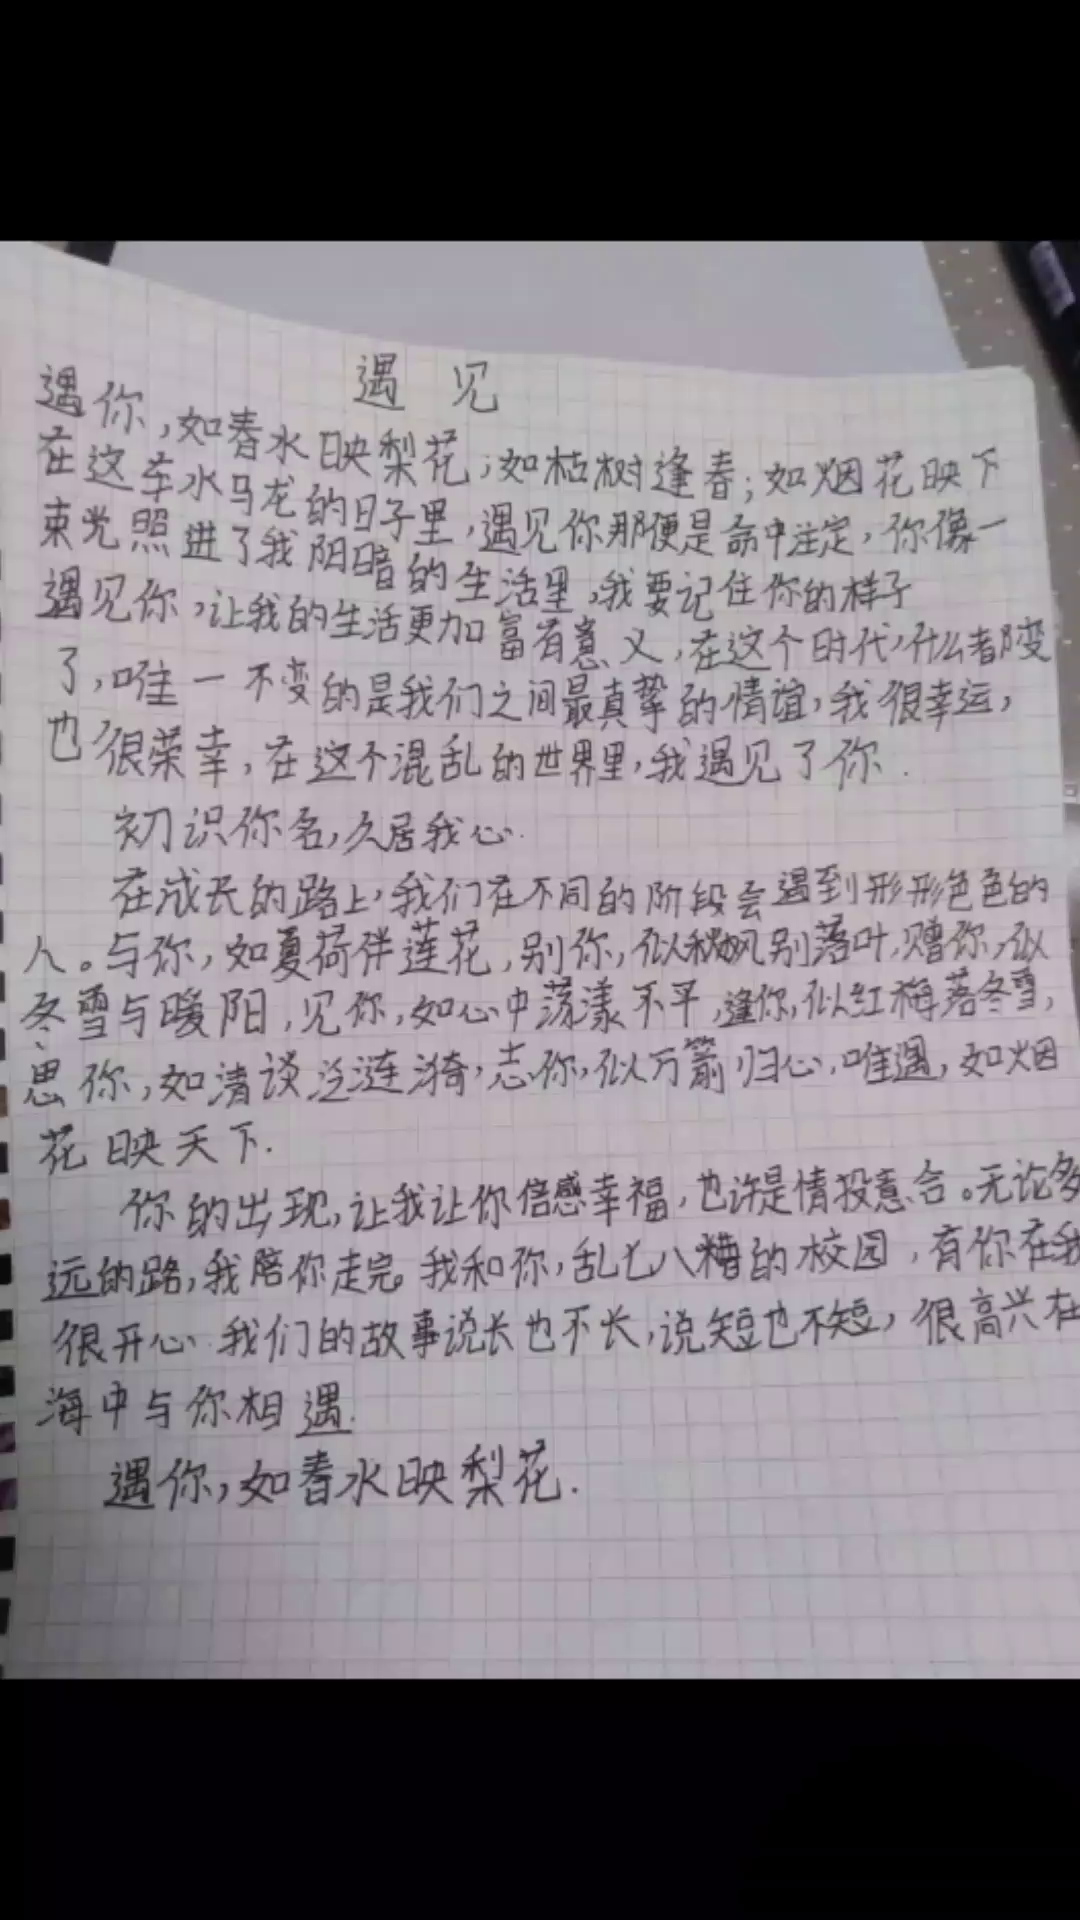 遇见
遇你，如春水映梨花；如枯树逢春；如烟花映下
在这车水马龙的日子里，遇见你那便是命中注定，你像一
束光照进了我阳暗的生活里，我要记住你的样子
遇见你，让我的生活更加富有意义，在这个时代，什么都变
了，唯一不变的是我们之间最真挚的情谊，我很幸运，
也很荣幸，在这个混乱的世界里，我遇见了你.
初识你名，久居我心.
在成长的路上，我们在不同的阶段会遇到形形色色的
人。与你，如夏荷伴莲花，别你，似秋风别落叶，赠你，似
冬雪与暖阳，见你，如心中荡漾不平，逢你，似红梅落冬雪，
思你，如清谈泛涟漪，志你，似万箭归心，唯遇，如烟
花映天下.
你的出现，让我让你倍感幸福，也许是情投意合。无论多
远的路，我陪你走完。我和你，乱七八糟的校园，有你在我
很开心.我们的故事说长也不长，说短也不短，很高兴在
海中与你相遇.
遇你，如春水映梨花.